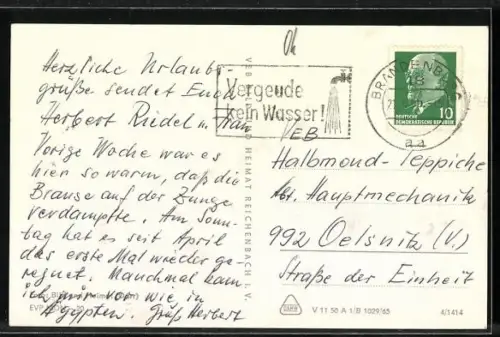 Oh
Herzliche Urlaubs-
grüße sendet Euch
Herbert Riedel u. Frau
Vorige Woche war es
hier so warm, daß die
Brause auf der Zunge
verdampfte. Am Sonn-
tag hat es seit April
das erste Mal wieder ge-
regnet. Manchmal kam
ich mir vor wie in
Ägypten. Gruß Herbert
Vergeude
kein Wasser!
BRANDENBURG
18
aa
DEUTSCHE
DEMOKRATISCHE REPUBLIK
10
VEB
Halbmond-Teppiche
Abt. Hauptmechanik
992 Oelsnitz (V.)
Straße der Einheit
HEIMAT REICHENBACH I. V.
V 11 50 A 1/B 1029/65
4/1414